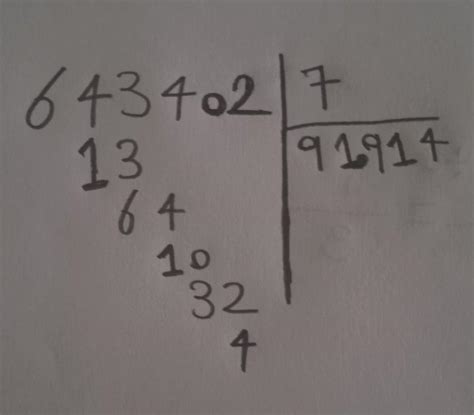 643402 7
91914
13
64
10
32
4